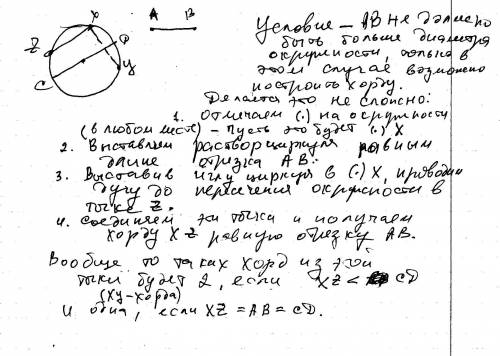 X
A B
Z
D
C
У
Условие – АВ не должно
быть больше диаметра
окружности, только в
этом случае возможно
построить хорду.
Делается это не сложно:
1. Отмечаем (.) на окружности
(в любом месте) – пусть это будет (.) X
2. Выставляем раствор циркуля равным
длине отрезка АВ.
3. Выставив иглу циркуля в (.) X, проводим
дугу до пересечения окружности в
точке Z.
4. Соединяем эти точки и получаем
хорду XZ равную отрезку АВ.
Вообще то таких хорд из этой
точки будет 2, если XZ < CD
(XY-хорда)
И одна, если XZ = AB = CD.